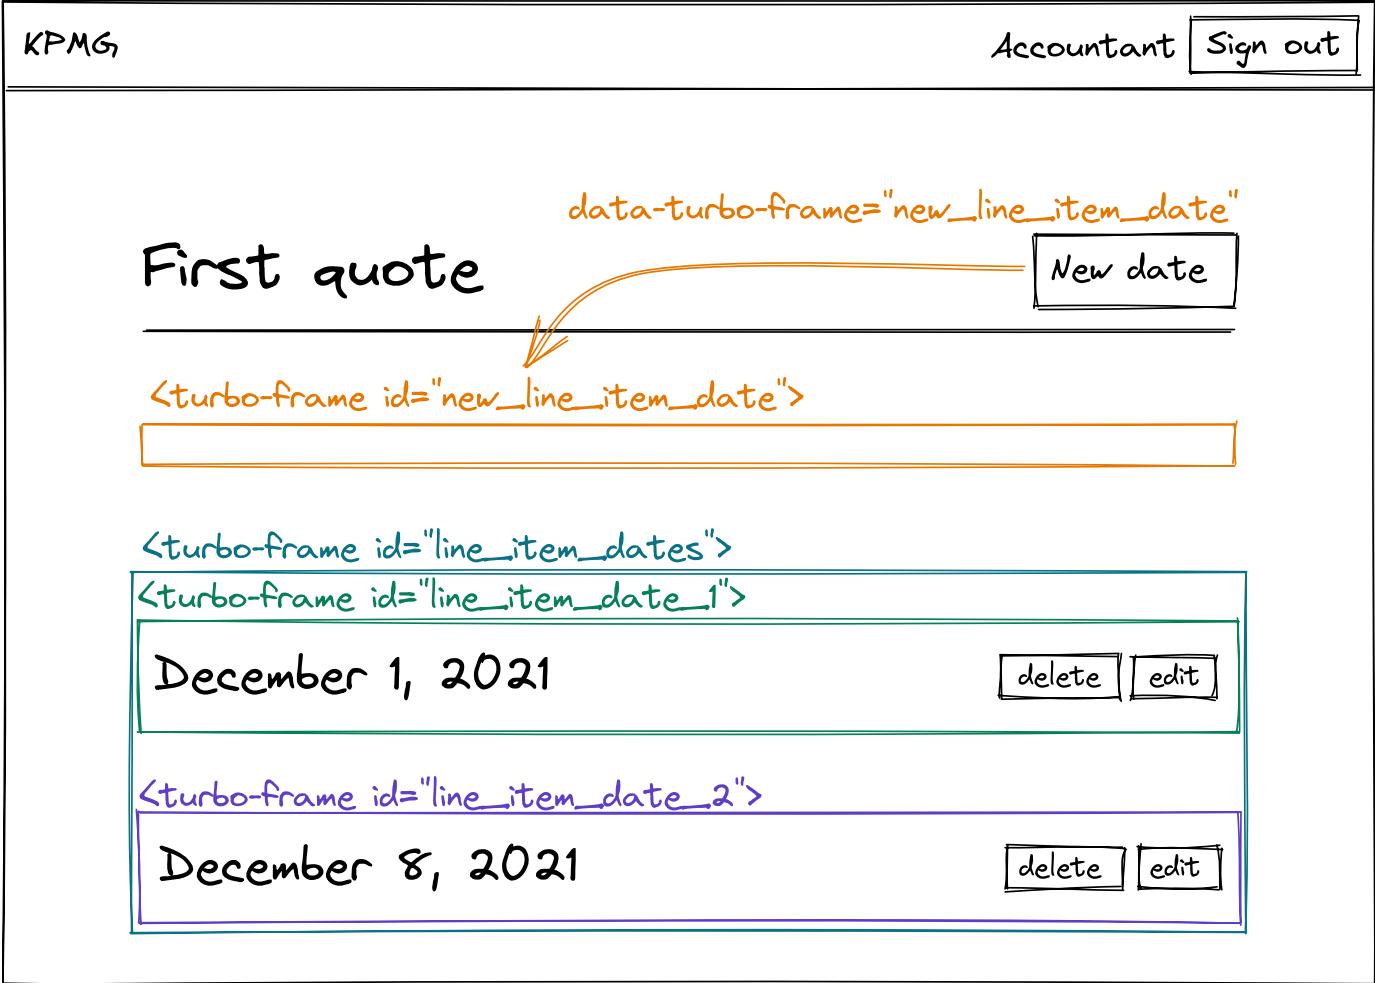 KPMG
Accountant Sign out
data-turbo-frame="new_line_item_date"
First quote
New date
<turbo-frame id="new_line_item_date">
<turbo-frame id="line_item_dates">
<turbo-frame id="line_item_date_1">
December 1, 2021 delete edit
<turbo-frame id="line_item_date_2">
December 8, 2021 delete edit